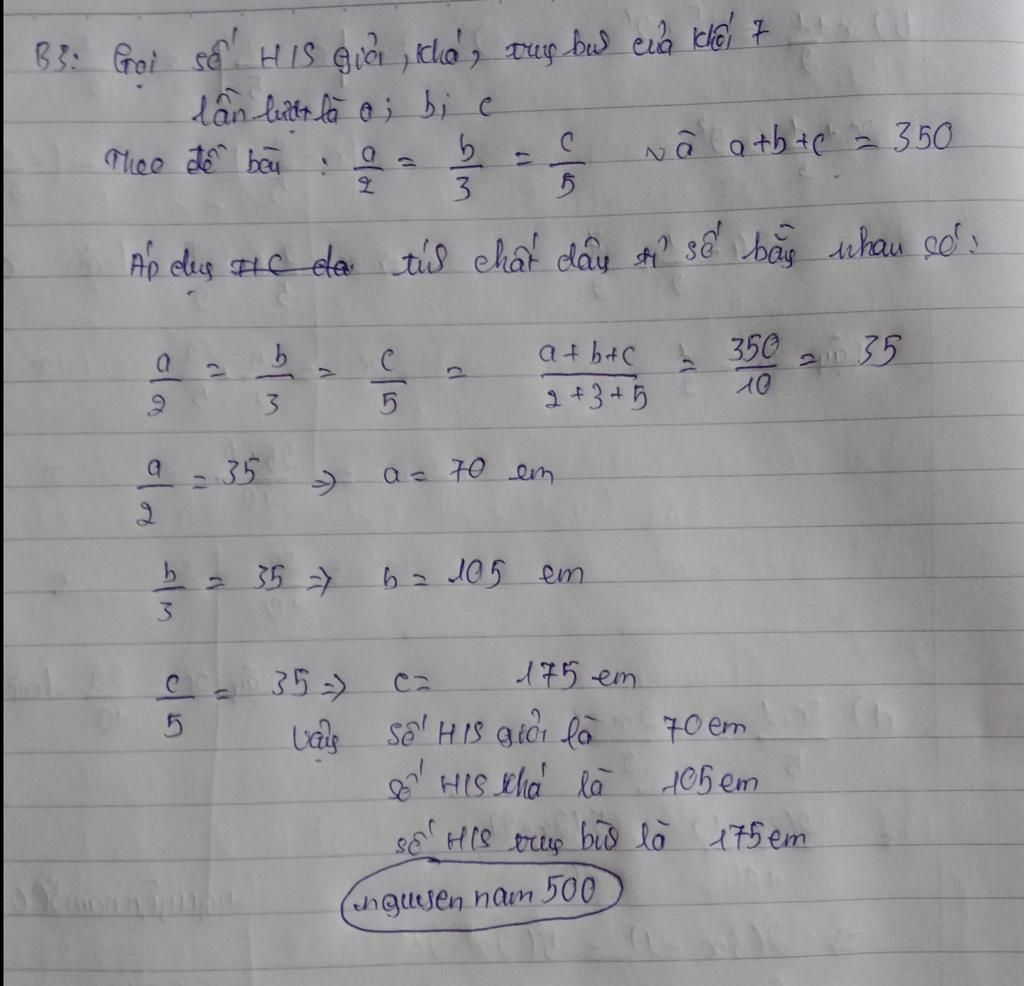 B3: Gọi số H/S giỏi, khá, trug bìs của khối 7
lần lượt là a; b; c
Theo đề bài : a/2 = b/3 = c/5 và a+b+c = 350
Áp dụg tís chất dãy tỉ số bằg nhau có:
a/2 = b/3 = c/5 = (a+b+c)/(2+3+5) = 350/10 = 35
a/2 = 35 => a = 70 em
b/3 = 35 => b = 105 em
c/5 = 35 => c = 175 em
Vậy số H/S giỏi là 70 em
số H/S khá là 105 em
số H/S trug bìs là 175 em
nguyen nam 500